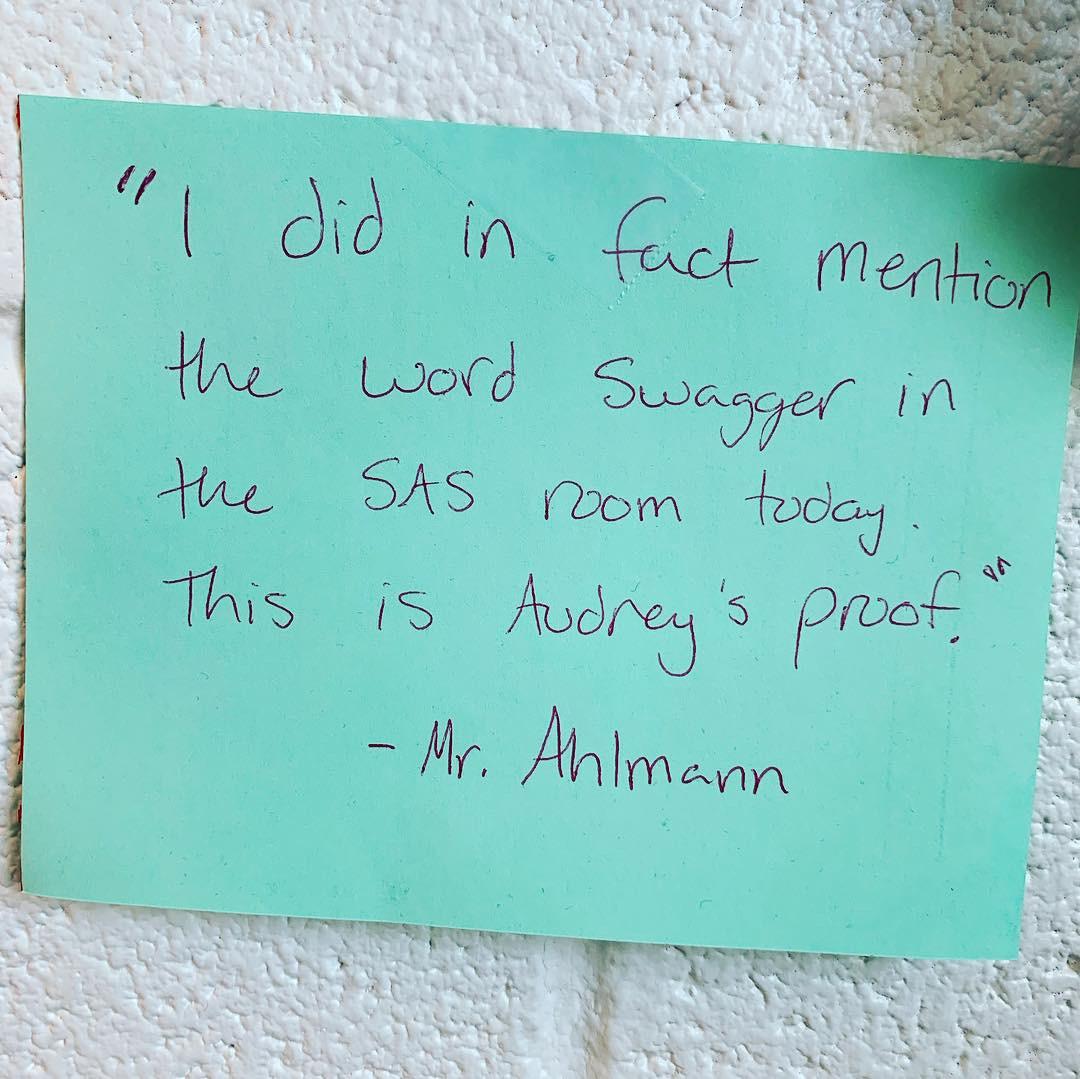 "I did in fact mention
the word Swagger in
the SAS room today.
This is Audrey's proof."
- Mr. Ahlmann